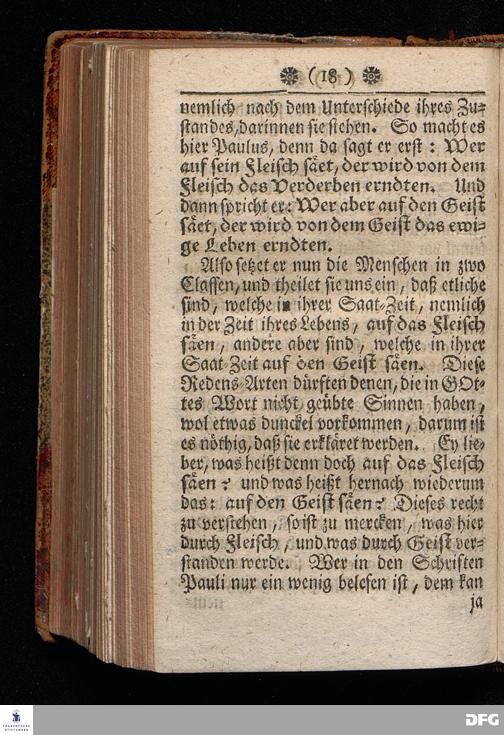 ❁ (18) ❁
nemlich nach dem Unterschiede ihres Zu⸗
standes, darinnen sie stehen. So macht es
hier Paulus, denn da sagt er erst: Wer
auf sein Fleisch säet, der wird von dem
Fleisch das Verderben erndten. Und
dann spricht er: Wer aber auf den Geist
säet, der wird von dem Geist das ewi⸗
ge Leben erndten.
Also setzet er nun die Menschen in zwo
Classen, und theilet sie uns ein, daß etliche
sind, welche in ihrer Saat⸗Zeit, nemlich
in der Zeit ihres Lebens, auf das Fleisch
säen, andere aber sind, welche in ihrer
Saat⸗Zeit auf den Geist säen. Diese
Redens⸗Arten dürften denen, die in GOt⸗
tes Wort nicht geübte Sinnen haben,
wol etwas dunckel vorkommen, darum ist
es nöthig, daß sie erkläret werden. Ey lie⸗
ber, was heißt denn doch auf das Fleisch
säen? und was heißt hernach wiederum
das: auf den Geist säen? Dieses recht
zu verstehen, so ist zu mercken, was hier
durch Fleisch, und was durch Geist ver⸗
standen werde. Wer in den Schriften
Pauli nur ein wenig belesen ist, dem kan
ja
FRANCKESCHE
STIFTUNGEN
DFG